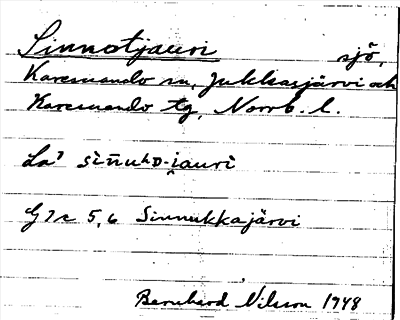 Sinnotjauri sjö,
Karesuando sn, Jukkasjärvi och
Karesuando tg, Norrb. l.
La⁷ sīn̄uᴸᴰ-i̯auri
G7c 5,6 Sinnukkajärvi
Bernhard Nilsson 1948